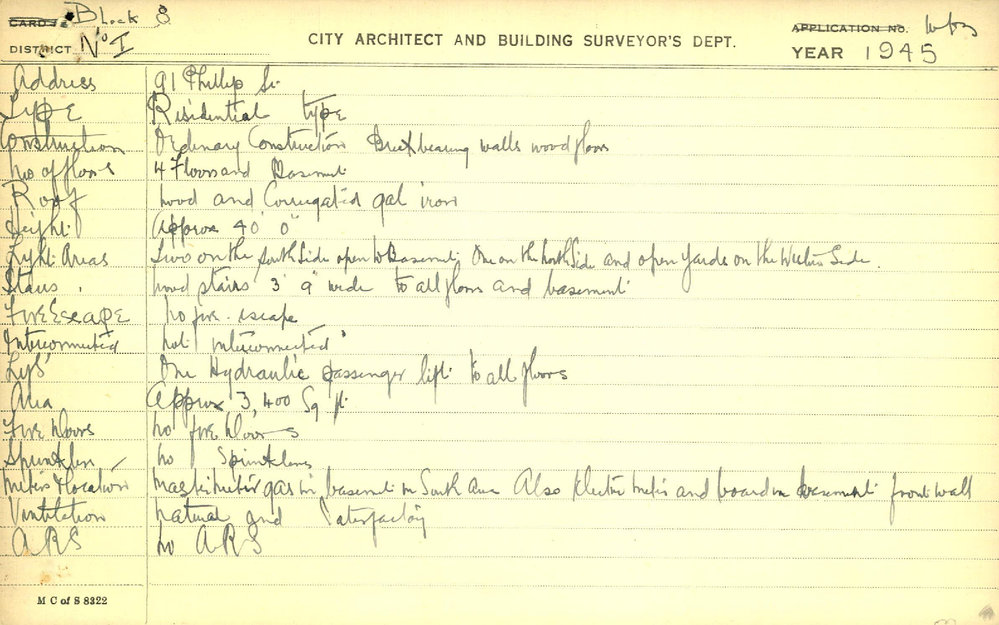 CARD Block 8
DISTRICT No I
CITY ARCHITECT AND BUILDING SURVEYOR'S DEPT.
APPLICATION NO.
YEAR 1945
Address 91 Phillip St
Type Residential type
Construction Ordinary Construction Brick bearing walls wood floors
No of floors 4 Floors and Basement
Roof Wood and Corrugated gal iron
Height Approx 40' 0"
Light Areas Two on the South Side open to Basement. One on the North Side and open yards on the Western Side.
Stairs wood stairs 3' 9" wide to all floors and basement
Fire Escape No fire escape
Interconnected Not interconnected
Lifts One Hydraulic passenger lift to all floors
Area Approx 3,400 Sq ft
Fire Doors No fire Doors
Sprinklers No Sprinklers
Meters & location Master meter gas in basement in South Area Also Electric meter and board in basement front wall
Ventilation Natural and Satisfactory
ARS No ARS
M C of S 8322